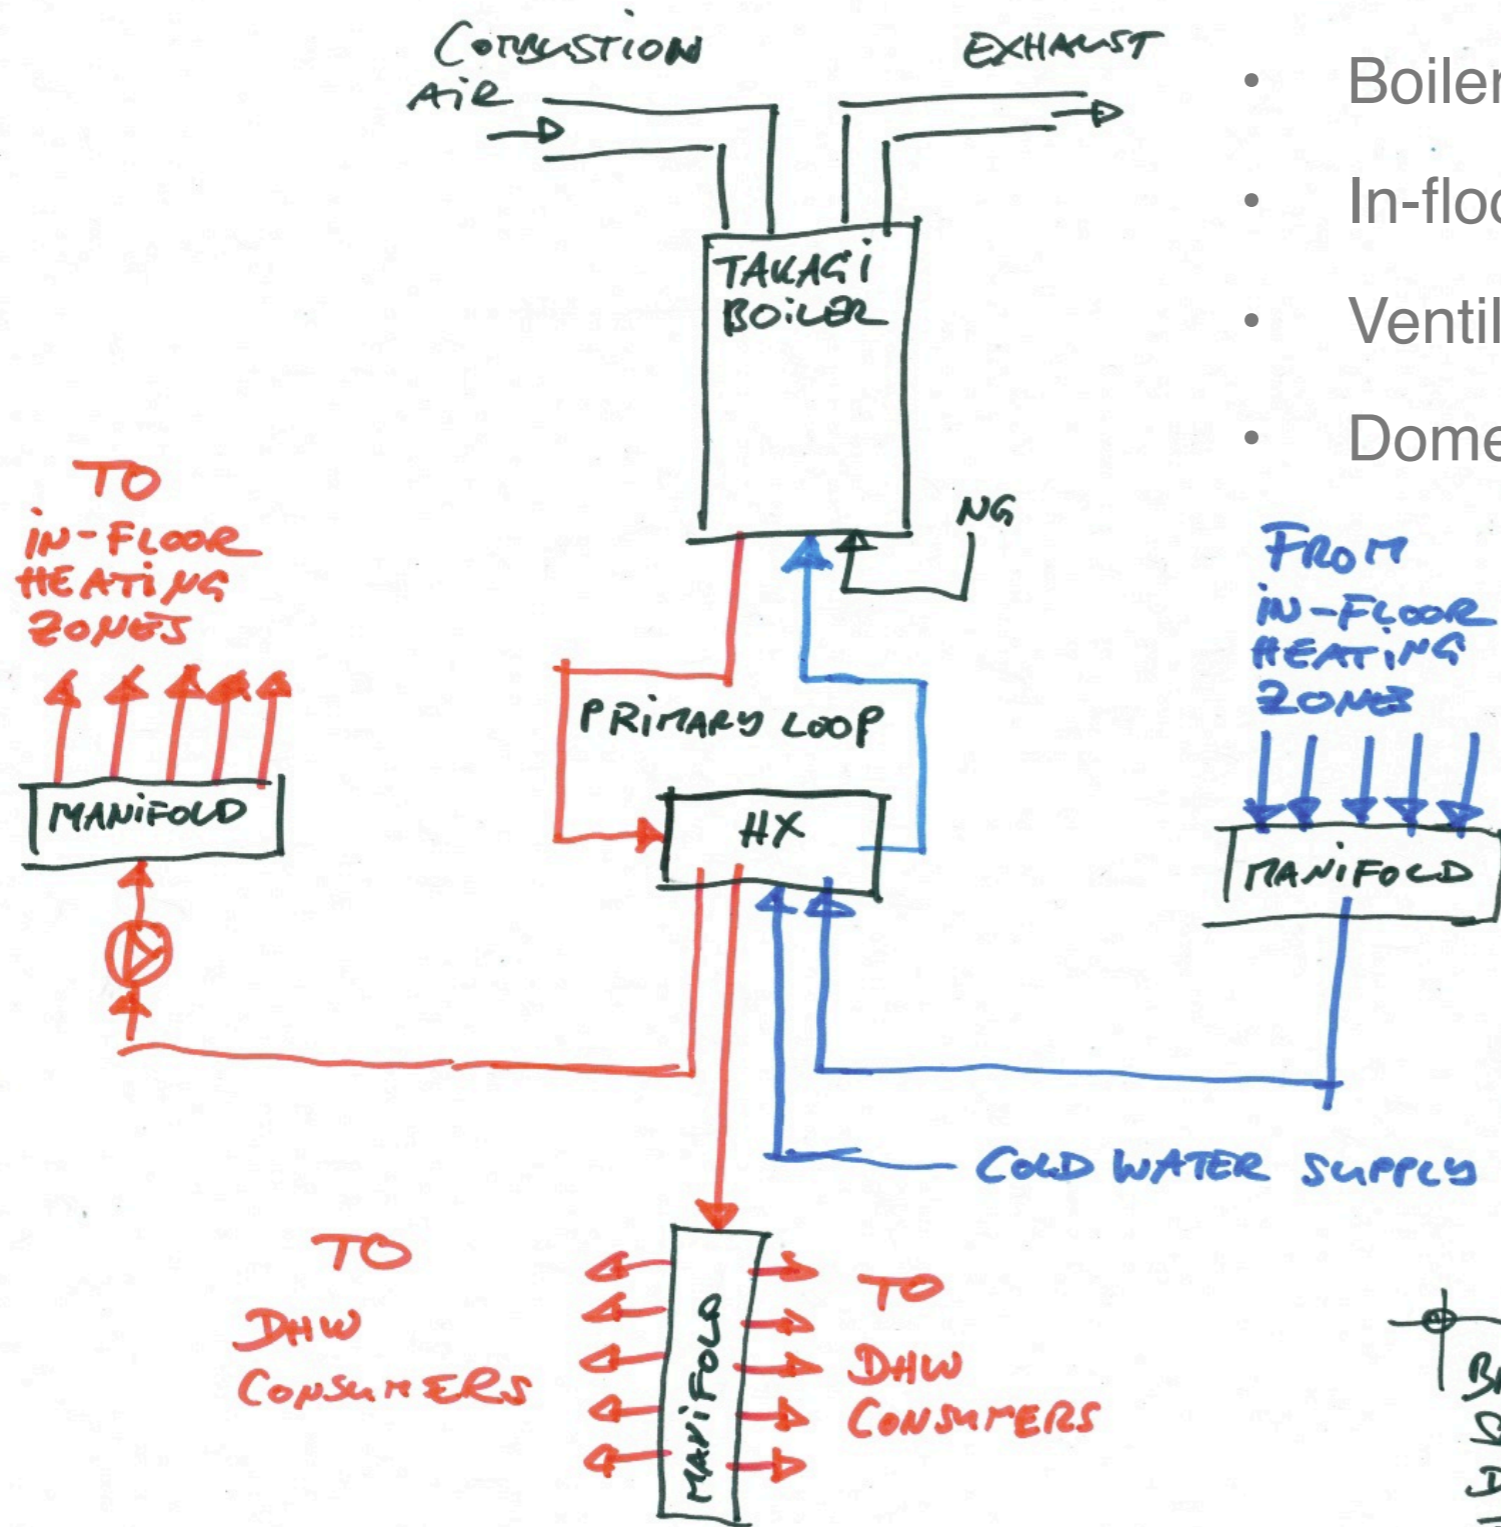 COMBUSTION
AIR
EXHAUST
• Boiler
• In-floo
• Ventil
• Dome
TAKAGI
BOILER
NG
TO
IN-FLOOR
HEATING
ZONES
FROM
IN-FLOOR
HEATING
ZONES
PRIMARY LOOP
MANIFOLD
HX
MANIFOLD
COLD WATER SUPPLY
TO
DHW
CONSUMERS
MANIFOLD
TO
DHW
CONSUMERS